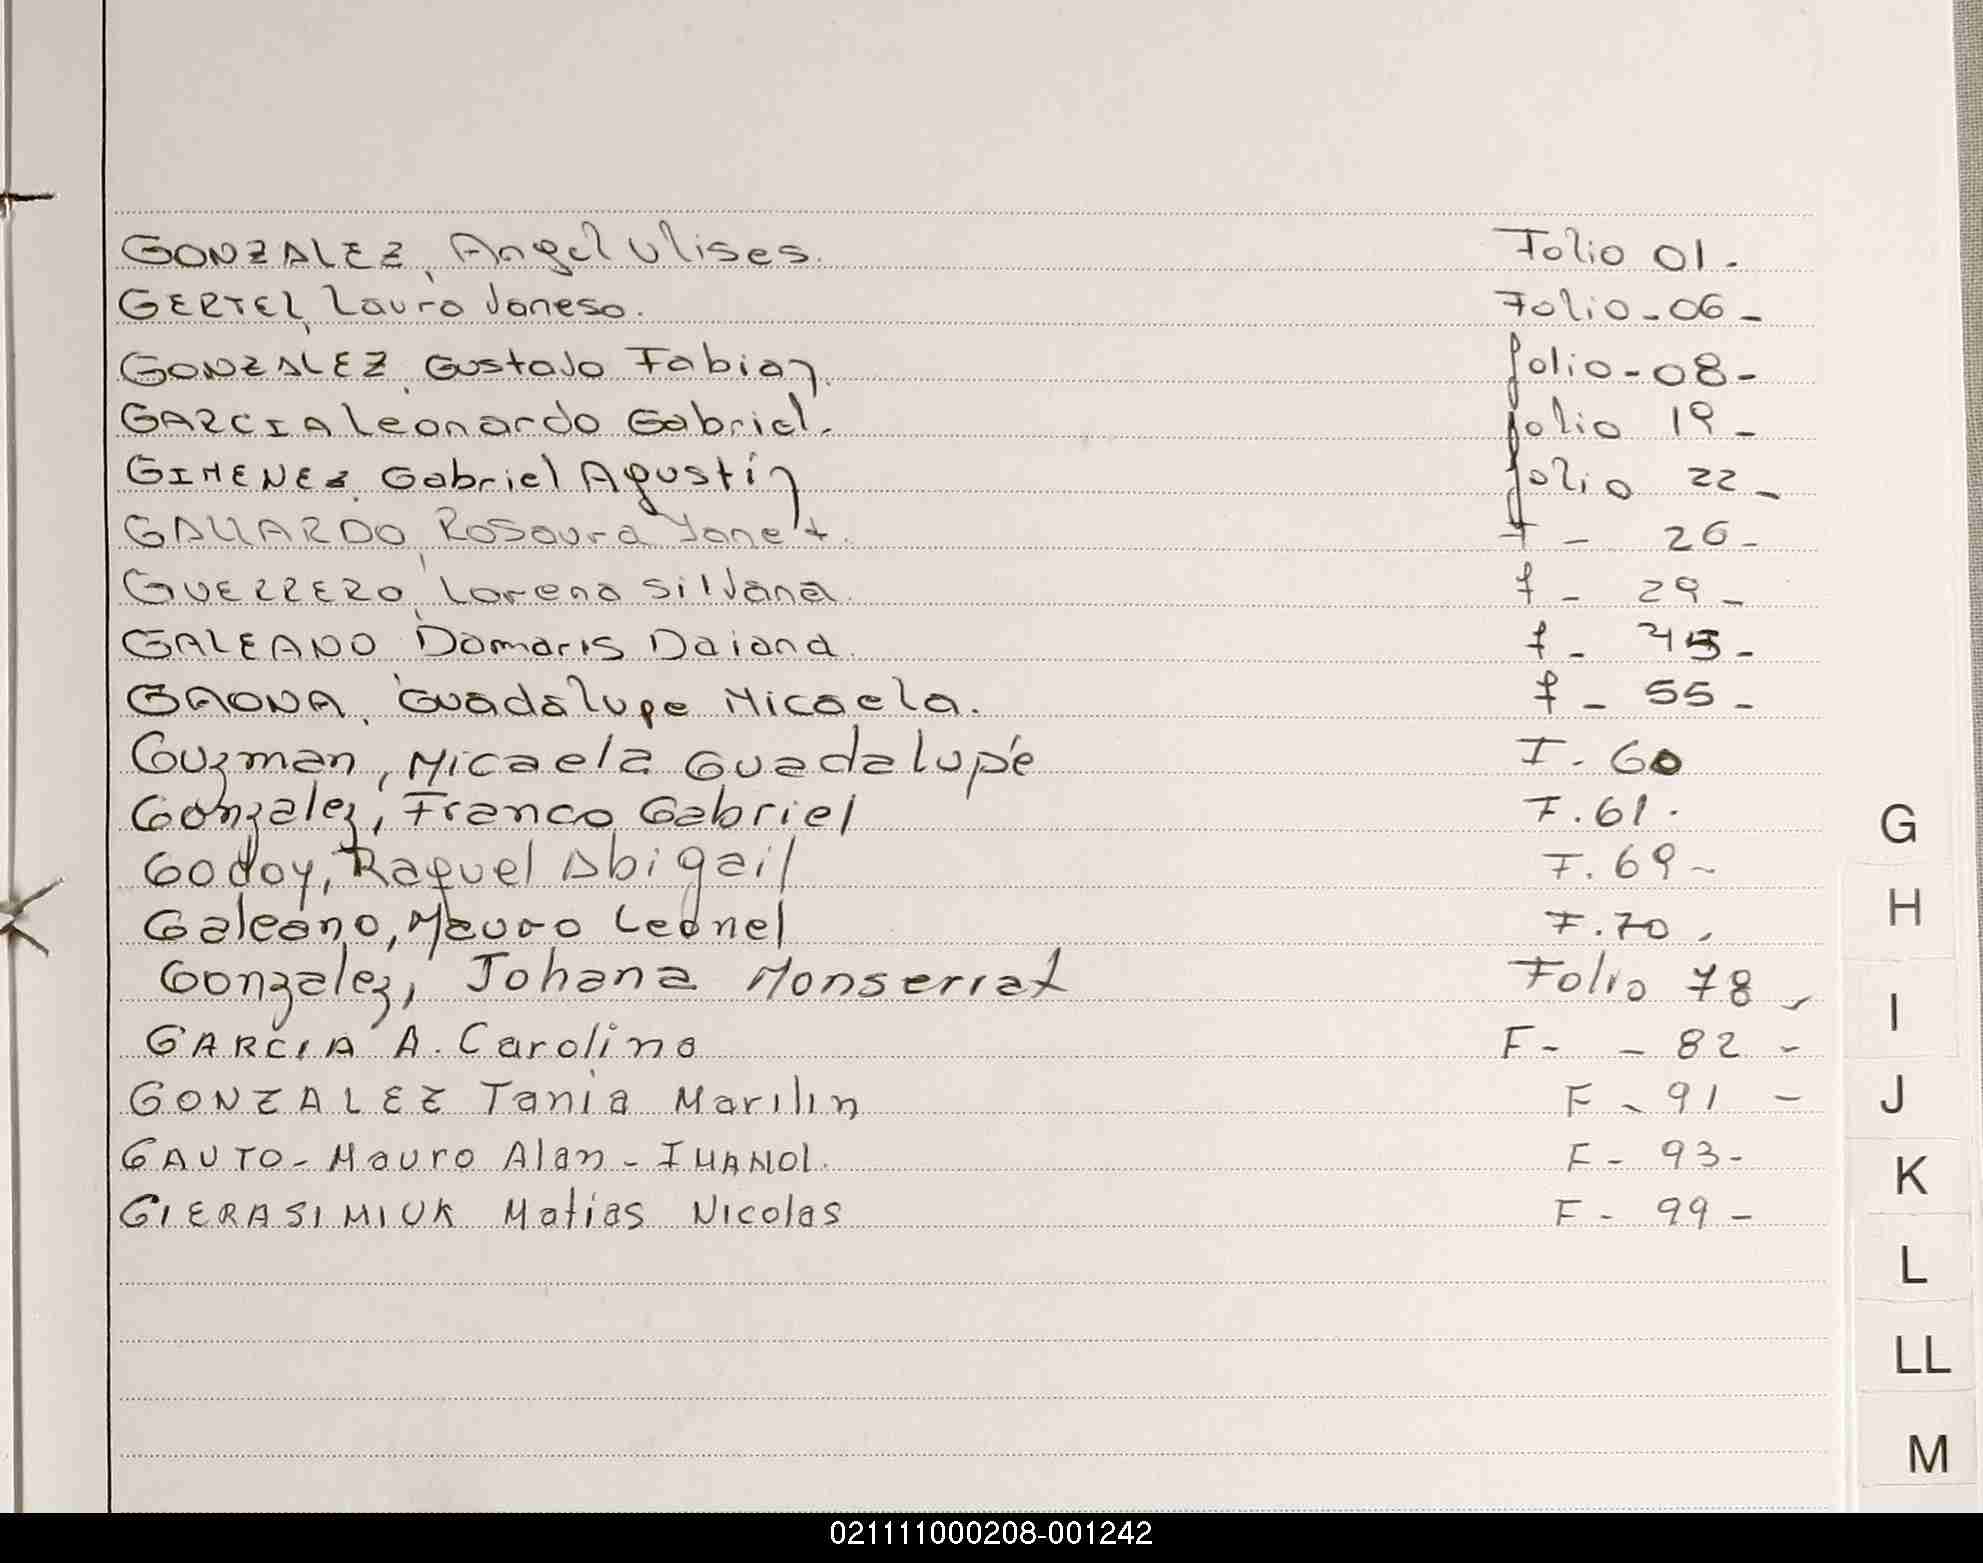 GONZALEZ, Angel Ulises. Folio 01.
GERTEL, Laura Vanesa. Folio - 06 -
GONZALEZ, Gustavo Fabian. folio - 08 -
GARCIA Leonardo Gabriel. folio 19 -
GIMENEZ, Gabriel Agustín folio 22 -
GALLARDO, Rosaura Yanet. f - 26 -
GUERRERO, Lorena Silvana. f - 29 -
GALEANO Damaris Daiana. f - 45 -
GAONA, Guadalupe Micaela. f - 55 -
Guzman, Micaela Guadalupe F. 60
Gonzalez, Franco Gabriel F. 61.
Godoy, Raquel Abigail F. 69 -
Galeano, Mauro Leonel F. 70.
Gonzalez, Johana Monserrat Folio 78 -
GARCIA A. Carolina F - - 82 -
GONZALEZ Tania Marilin F - 91 -
GAUTO - Mauro Alan - F - 93 -
GIERASIMIUK Matias Nicolas F - 99 -
G
H
I
J
K
L
LL
M
021111000208-001242